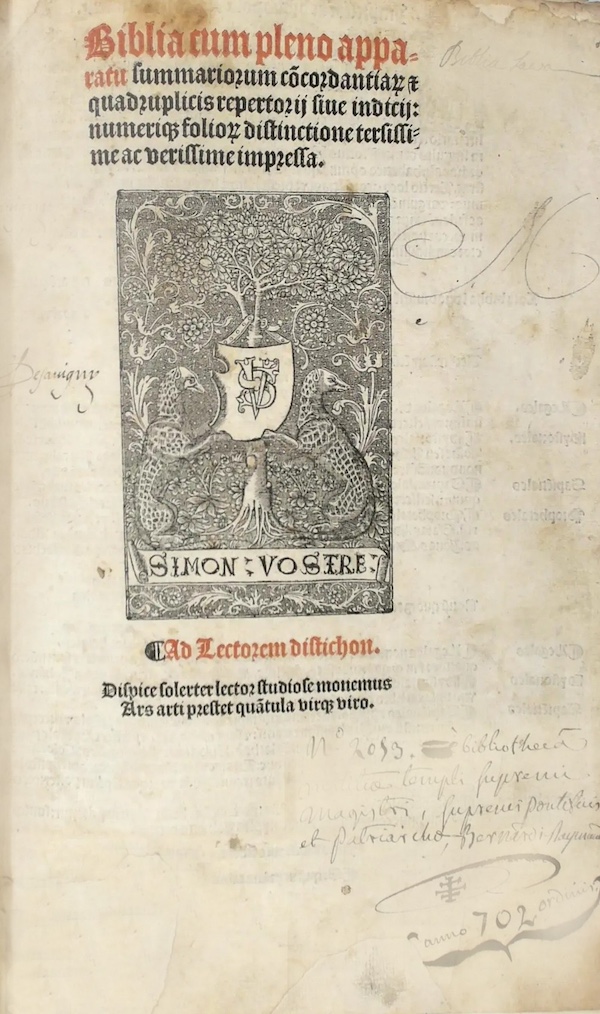 Biblia cum pleno appa⸗
ratu summariorum cōcordantiaꝝ ⁊
quadruplicis repertorij siue indicij:
numeriqꝫ folioꝝ distinctione tersissi⸗
me ac verissime impressa.
M
SV
SIMON : VOSTRE :
¶Ad Lectorem distichon.
Dispice solerter lector studiose monemus
Ars arti prestet quātula virqꝫ viro.
N° 2053. bibliothecā
templi supremi
magistri, supremi pontificis
et patriarchæ, Bernardi Raymundi
anno 702 ordinis